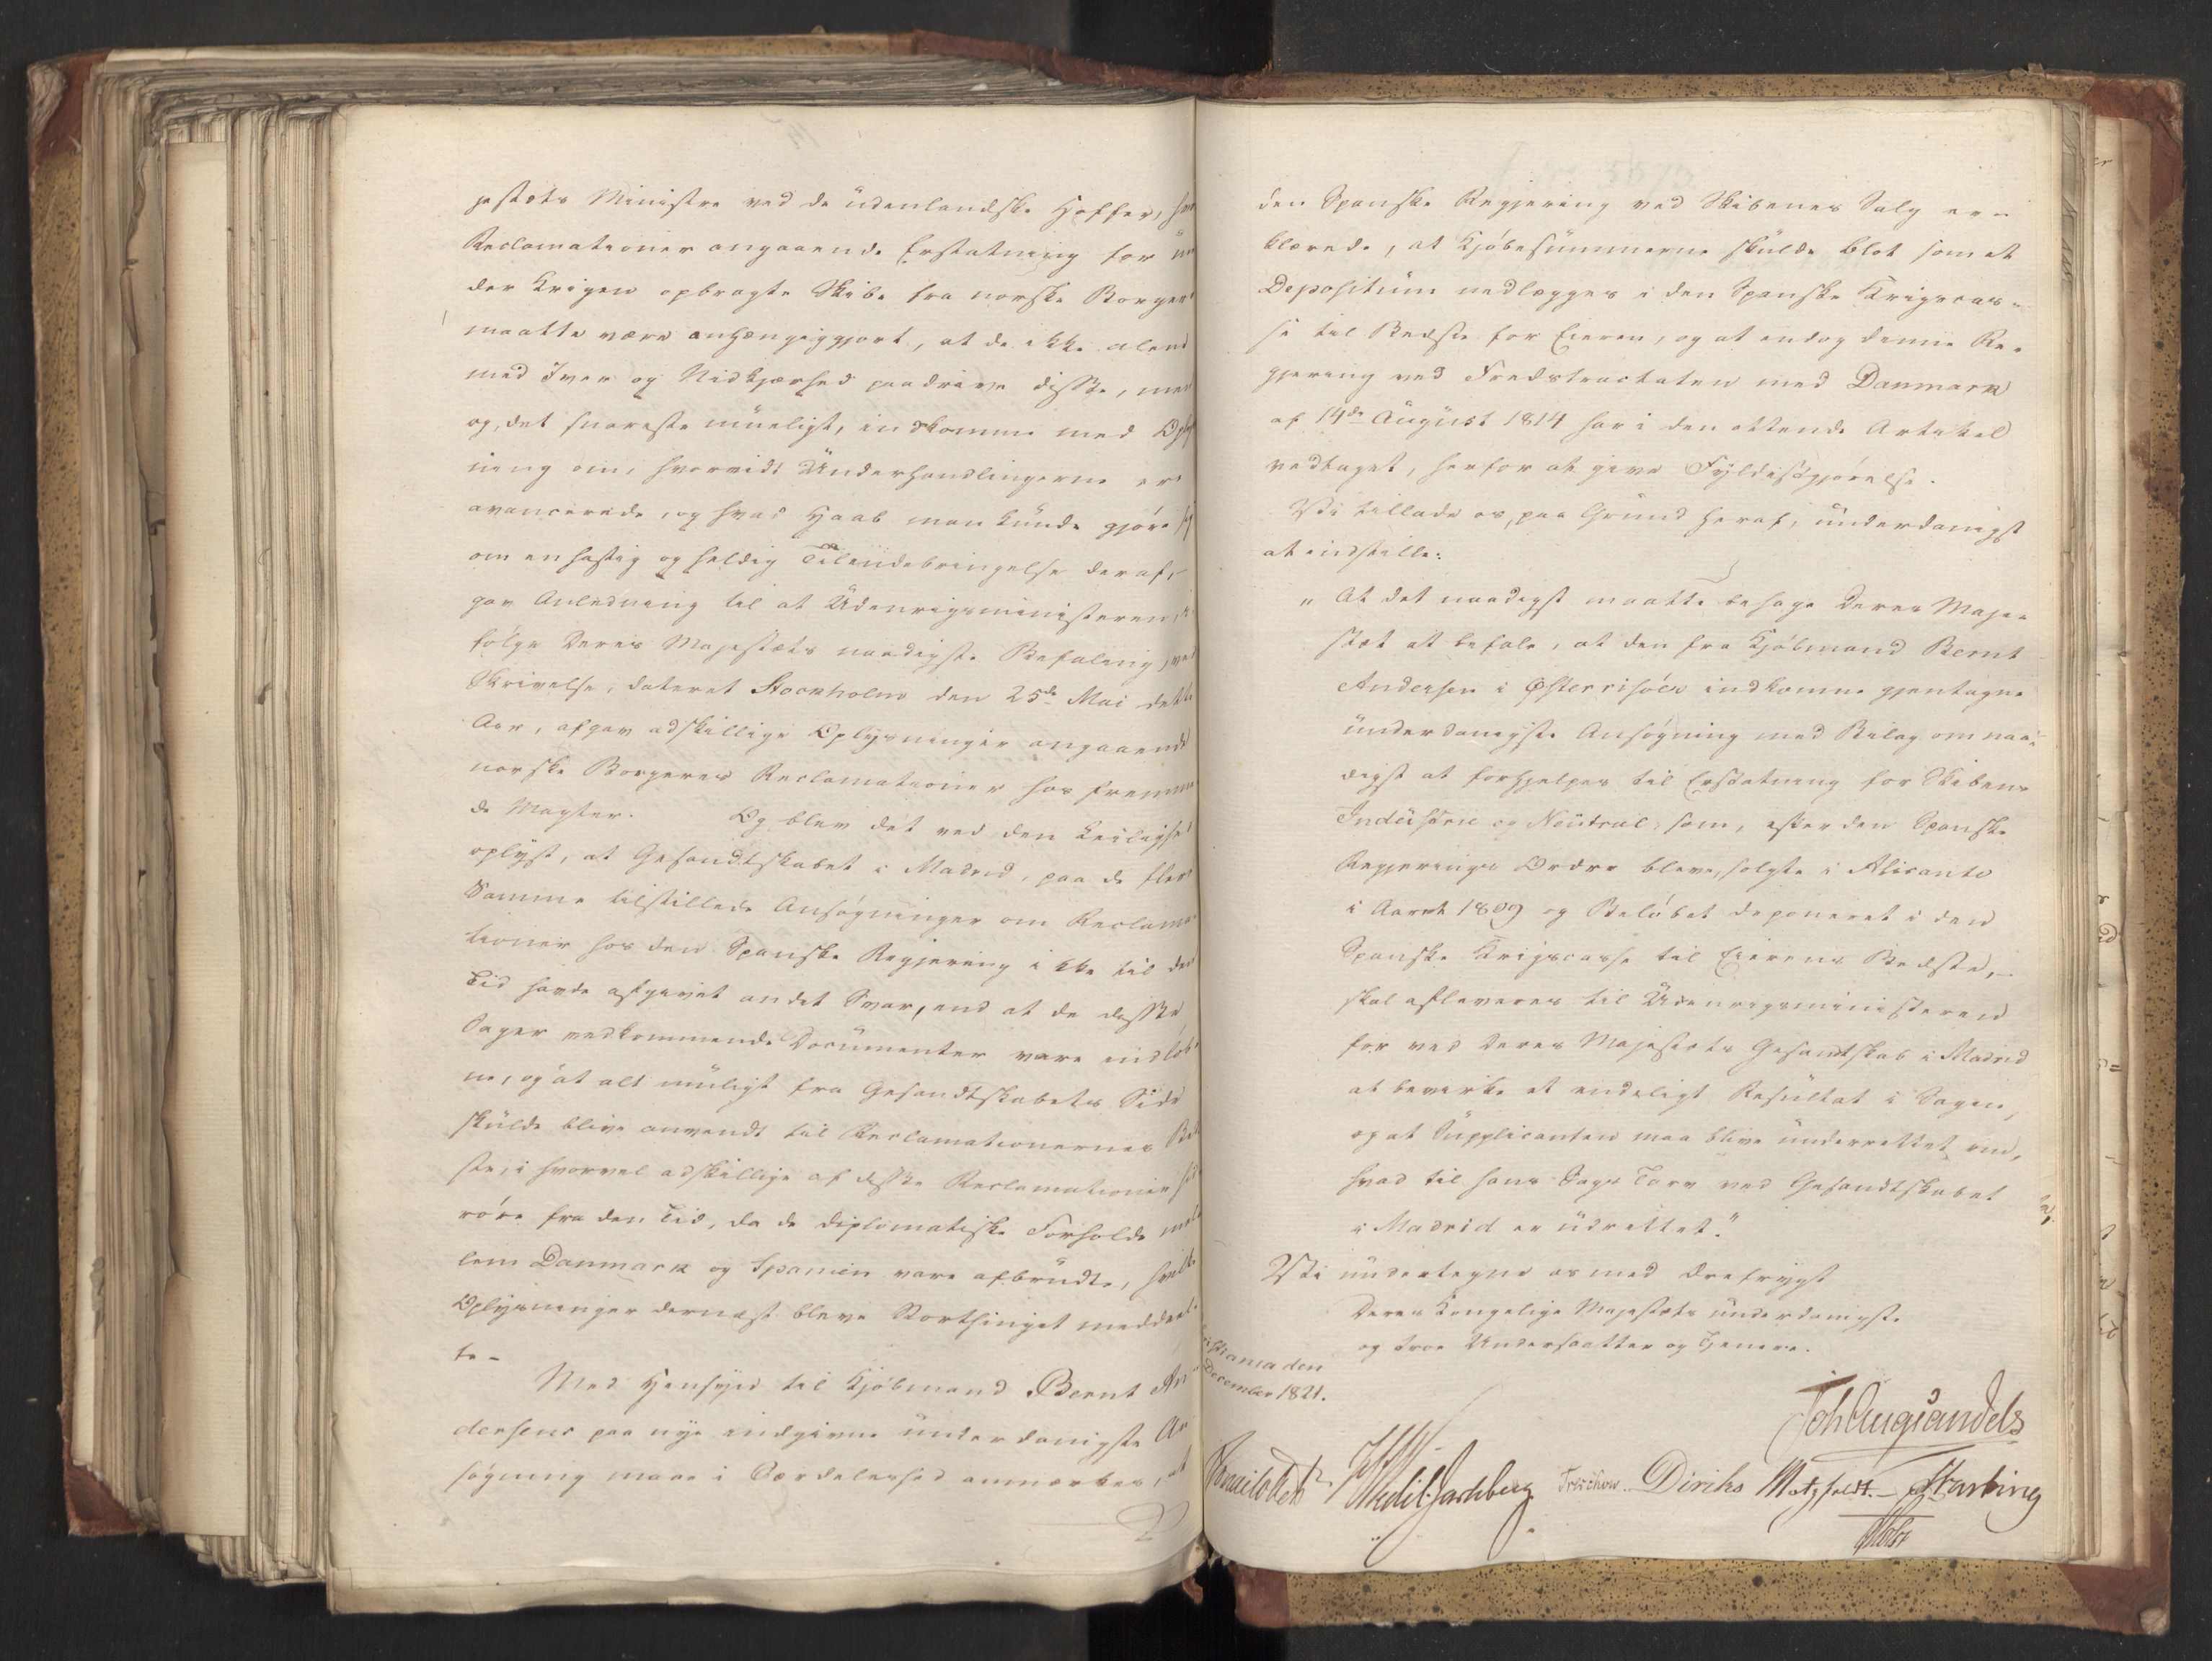 jestæts Ministre ved de udenlandske Hoffer, hvor
Reclamationer angaaende Erstatning for un
der Krigen opbragte Skibe fra norske Borgere
maatte være anhængiggjort, at de ikke alene
med Iver og Nidkjærhed paadrive disse, men
og, det snareste mueligt, indkomme med Oplys
ning om, hvorvidt Underhandlingerne ere
avancerede, og hvad Haab man kunde gjøre sig
om en hastig og heldig Tilendebringelse deraf,
gav Anledning til at Udenrigsministeren, i
følge Deres Majestæts naadigste Befaling, ved
Skrivelse, dateret Stockholm den 25de Mai dette
Aar, afgav adskillige Oplysninger angaaende
norske Borgeres Reclamationer hos fremme
de Magter. Og blev det ved den Leilighed
oplyst, at Gesandtskabet i Madrid, paa de flere
Samme tilstillede Ansøgninger om Reclama
tioner hos den Spanske Regjering ikke til den
Tid havde afgivet andet Svar, end at de disse
Sager vedkommende Documenter vare indløb
ne, og at alt muligt fra Gesandtskabets Side
skulde blive anvendt til Reclamationernes Bed
ste, i hvorvel adskillige af disse Reclamationer hid
røre fra den Tid, da de diplomatiske Forholde mel
lem Danmark og Spanien vare afbrudte, hvilke
Oplysninger dernæst bleve Storthinget meddeel
te -
Med Hensyn til Kjøbmand Bernt An
dersens paa nye indgivne underdanigste An
søgning maae i Særdeleshed anmærkes, at
den Spanske Regjering ved Skibenes Salg er=
klærede, at Kjøbesummerne skulde blot som et
Depositum nedlægges i den Spanske Krigscas=
se til Bedste for Eieren, og at endog denne Re=
gjering ved Fredstractaten med Danmark
af 14de August 1814 har i den ottende Artikel
vedtaget, herfor at give Fyldestgjørelse.
Vi tillade os, paa Grund heraf, underdanigst
at indstille:
" At det naadigst maatte behage Deres Maje=
stæt at befale, at den fra Kjøbmand Bernt
Andersen i Østerrisøer indkomne gjentagne
underdanigste Ansøgning med Bilag om naa=
digst at forhjelpes til Erstatning for Skibene
Industrie og Neutral, som, efter den Spanske
Regjerings Ordre bleve solgte i Alicante
i Aaret 1809 og Beløbet deponeret i den
Spanske Krigscasse til Eierens Bedste,
skal afleveres til Udenrigsministeren
for ved Deres Majestæts Gesandtskab i Madrid
at bevirke et endeligt Resultat i Sagen,
og at Supplicanten maa blive underrettet om,
hvad til hans Sags Tarv ved Gesandtskabet
i Madrid er udrettet."
Vi undertegne os med Ærefrygt
Deres Kongelige Majestæts underdanigste
og troe Undersaatter og Tjenere.
istiania den
December 1821.
Joh Aug Sandels
Treschow Diriks Motzfeldt. Fasting
Holst